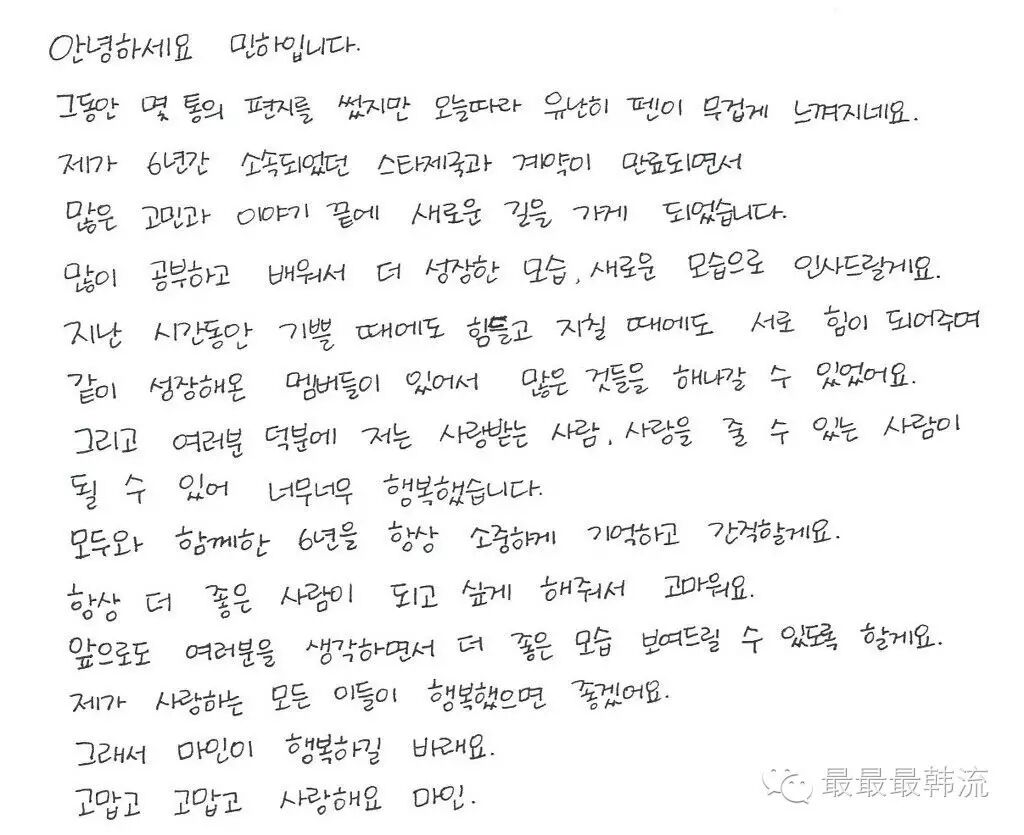 안녕하세요 민하입니다.
그동안 몇 통의 편지를 썼지만 오늘따라 유난히 펜이 무겁게 느껴지네요.
제가 6년간 소속되었던 스타제국과 계약이 만료되면서
많은 고민과 이야기 끝에 새로운 길을 가게 되었습니다.
많이 공부하고 배워서 더 성장한 모습, 새로운 모습으로 인사드릴게요.
지난 시간동안 기쁠 때에도 힘들고 지칠 때에도 서로 힘이 되어주며
같이 성장해온 멤버들이 있어서 많은 것들을 해나갈 수 있었어요.
그리고 여러분 덕분에 저는 사랑받는 사람, 사랑을 줄 수 있는 사람이
될 수 있어 너무너무 행복했습니다.
모두와 함께한 6년을 항상 소중하게 기억하고 간직할게요.
항상 더 좋은 사람이 되고 싶게 해줘서 고마워요.
앞으로도 여러분을 생각하면서 더 좋은 모습 보여드릴 수 있도록 할게요.
제가 사랑하는 모든 이들이 행복했으면 좋겠어요.
그래서 마인이 행복하길 바래요.
고맙고 고맙고 사랑해요 마인.
最最最韩流